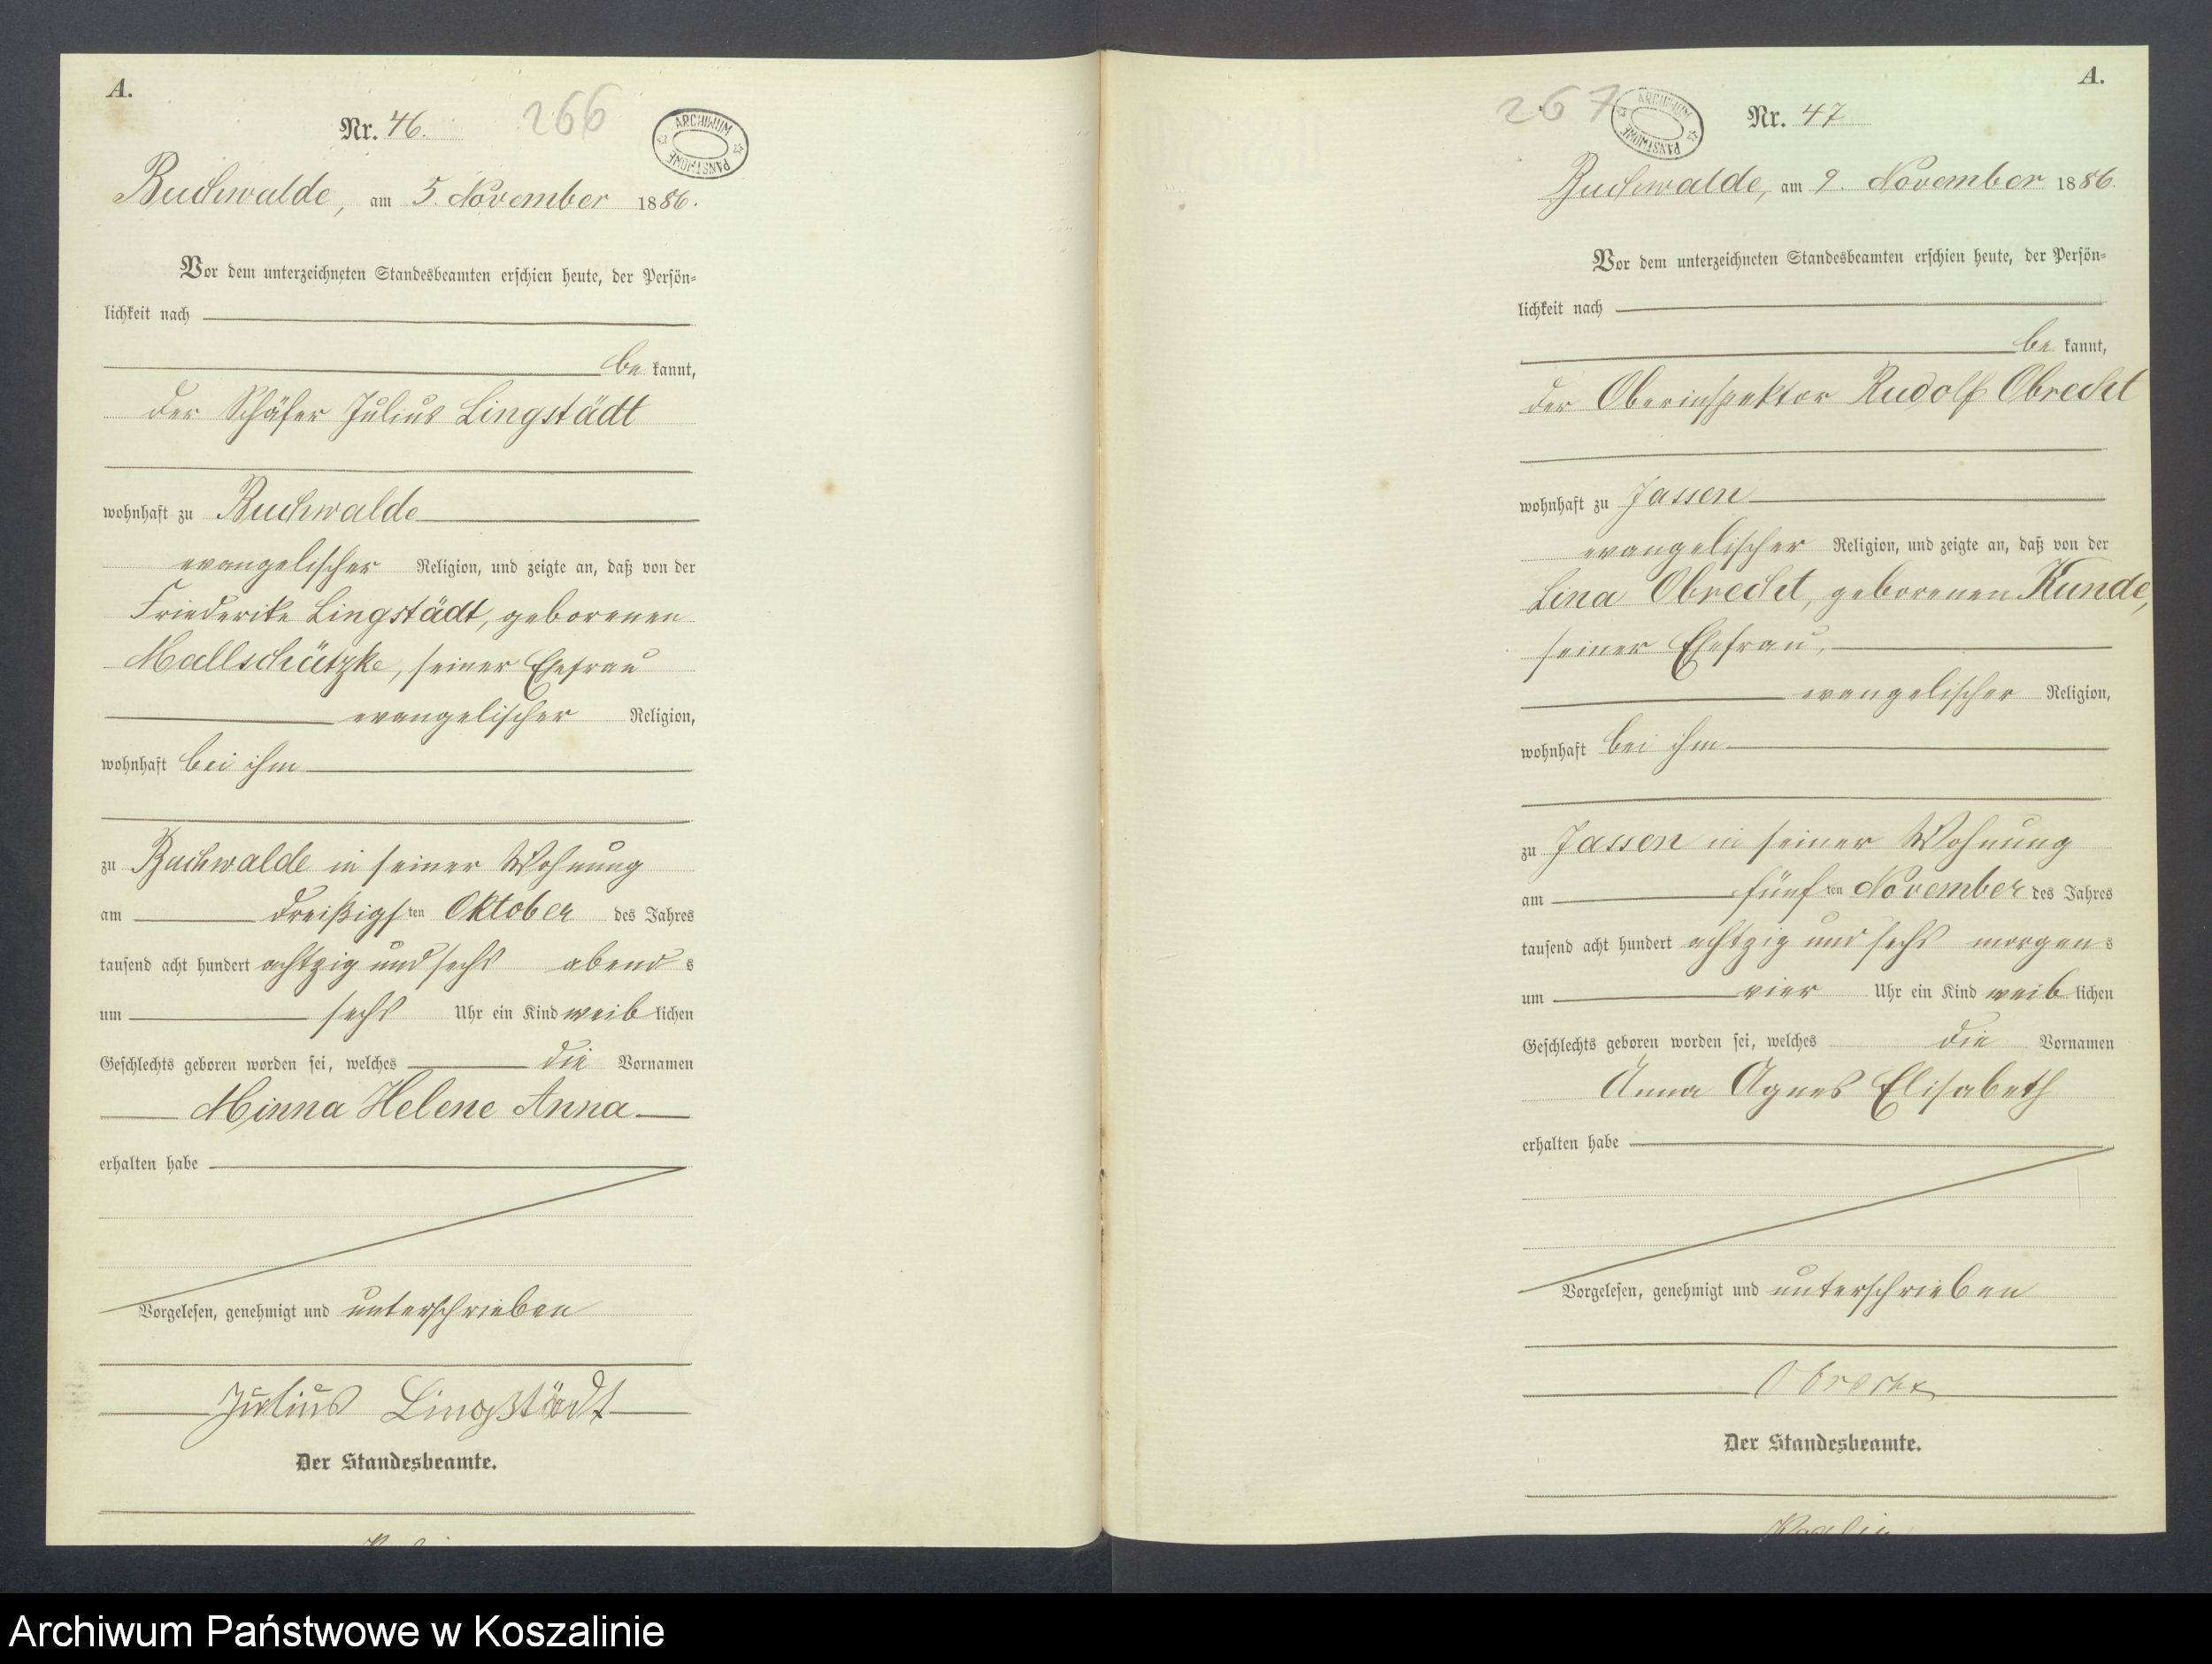 A.
Nr. 46.
266
ARCHIWUM PAŃSTWOWE
Buchwalde, am 5. November 1886.
Vor dem unterzeichneten Standesbeamten erschien heute, der Persön-
lichkeit nach
be kannt,
der Schäfer Julius Lingstädt
wohnhaft zu Buchwalde
evangelischer Religion, und zeigte an, daß von der
Friederike Lingstädt, geborenen
Mallschützke, seiner Ehefrau
evangelischer Religion,
wohnhaft bei ihm
zu Buchwalde in seiner Wohnung
am dreißigsten Oktober des Jahres
tausend acht hundert achtzig und sechs abend s
um sechs Uhr ein Kind weib lichen
Geschlechts geboren worden sei, welches die Vornamen
Minna Helene Anna
erhalten habe
Vorgelesen, genehmigt und unterschrieben
Julius Lingstädt
Der Standesbeamte.
A.
267
ARCHIWUM PAŃSTWOWE
Nr. 47
Buchwalde, am 9. November 1886.
Vor dem unterzeichneten Standesbeamten erschien heute, der Persön-
lichkeit nach
be kannt,
der Oberinspektor Rudolf Obrecht
wohnhaft zu Jassen
evangelischer Religion, und zeigte an, daß von der
Lina Obrecht, geborenen Kunde,
seiner Ehefrau,
evangelischer Religion,
wohnhaft bei ihm
zu Jassen in seiner Wohnung
am fünf ten November des Jahres
tausend acht hundert achtzig und sechs morgen s
um vier Uhr ein Kind weib lichen
Geschlechts geboren worden sei, welches die Vornamen
Anna Agnes Elisabeth
erhalten habe
Vorgelesen, genehmigt und unterschrieben
Obrecht
Der Standesbeamte.
Archiwum Państwowe w Koszalinie